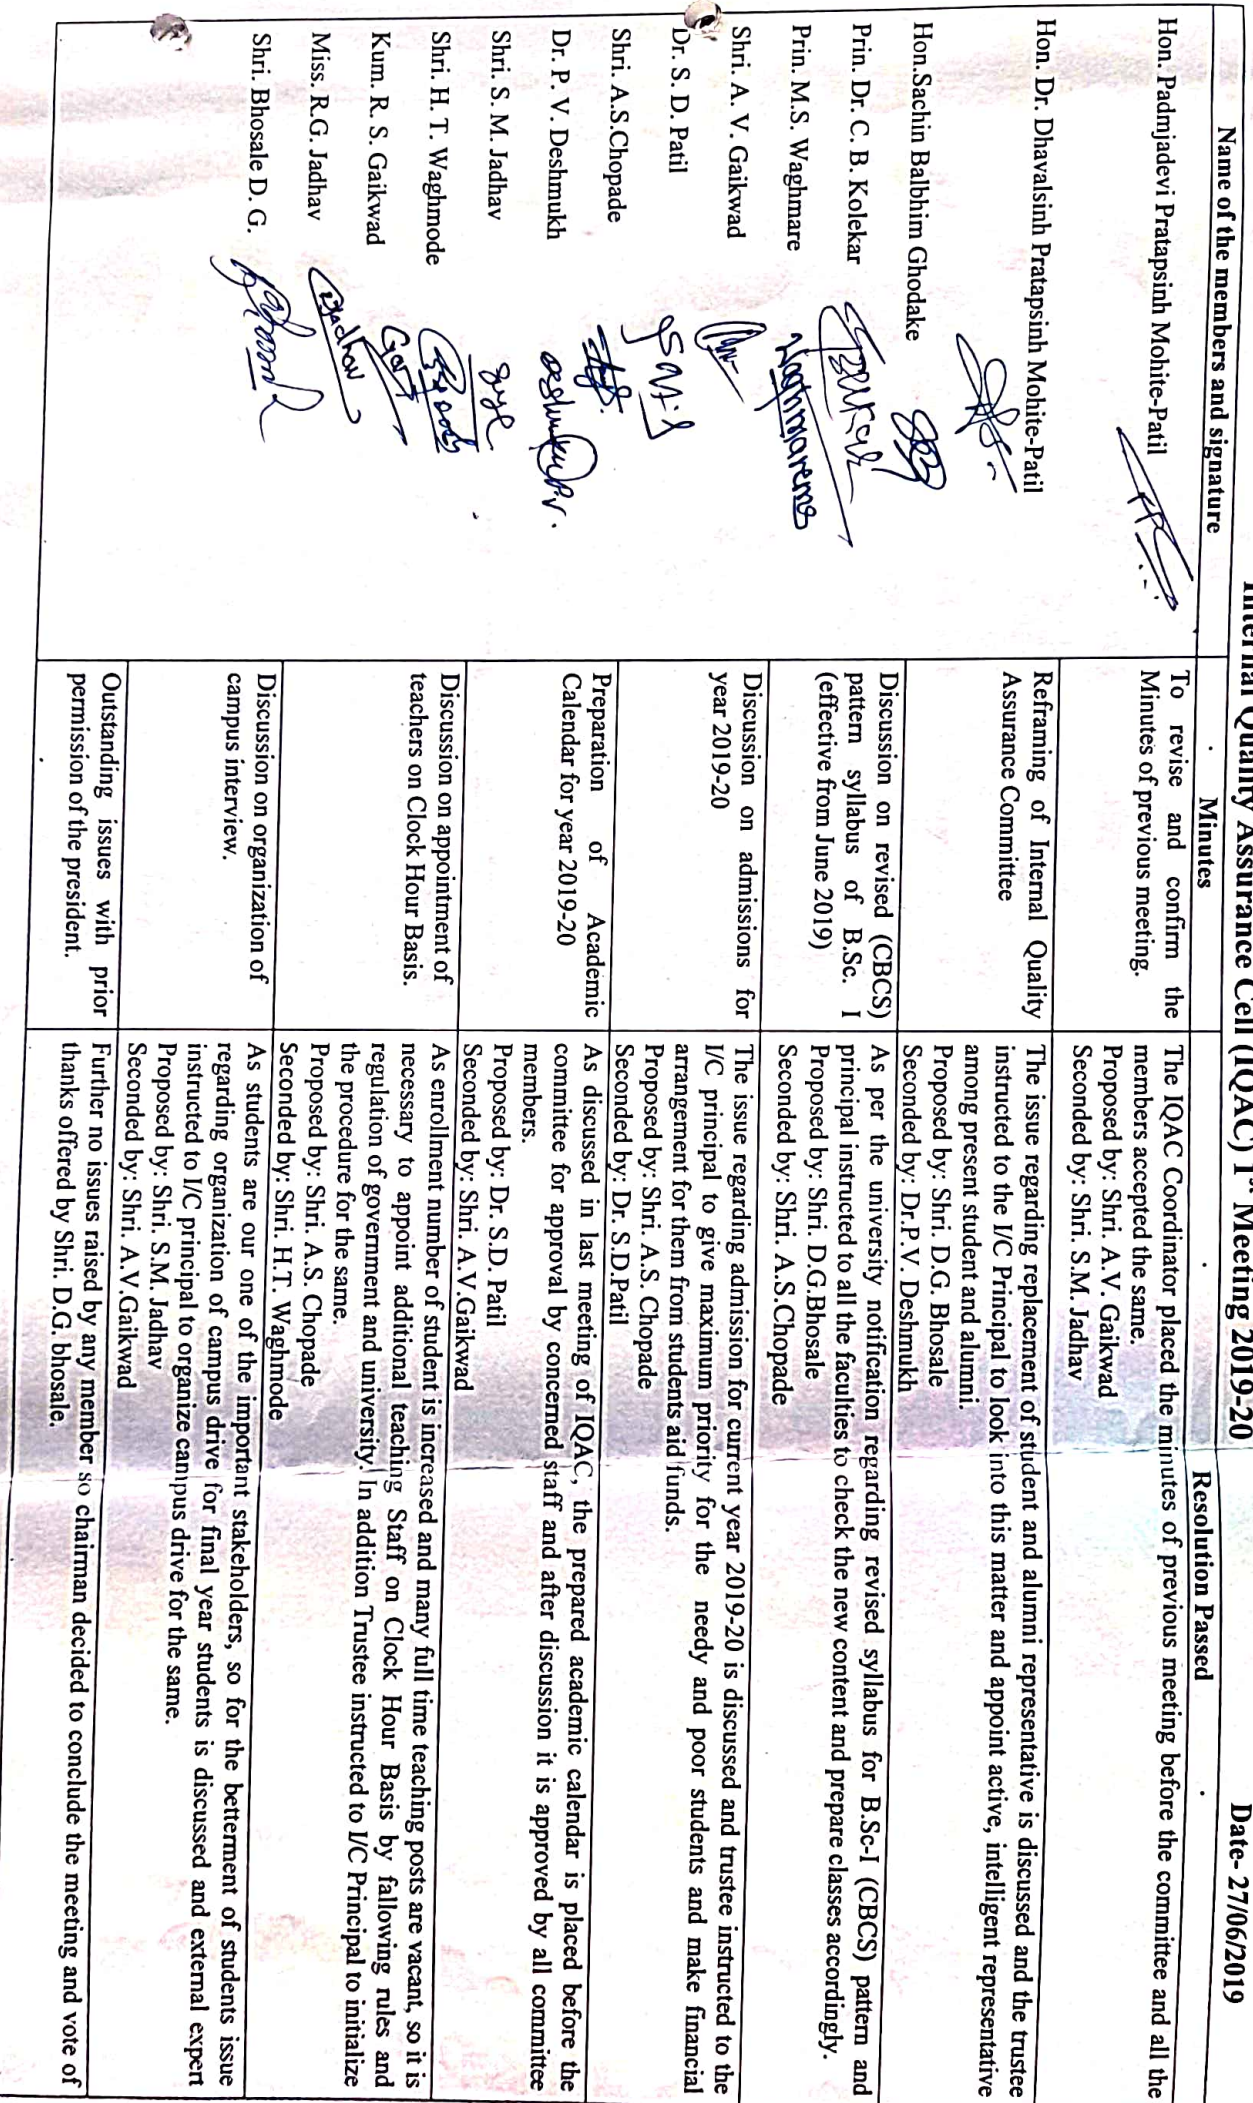 Internal Quality Assurance Cell (IQAC) 1st Meeting 2019-20
Date- 27/06/2019
Name of the members and signature
Hon. Padmjadevi Pratapsinh Mohite-Patil
Hon. Dr. Dhavalsinh Pratapsinh Mohite-Patil
Hon.Sachin Balbhim Ghodake
Prin. Dr. C. B. Kolekar
Prin. M.S. Waghmare
Waghmarems
Shri. A. V. Gaikwad
Dr. S. D. Patil
Patil
Shri. A.S.Chopade
Dr. P. V. Deshmukh
Deshmukh P.V.
Shri. S. M. Jadhav
Shri. H. T. Waghmode
Kum. R. S. Gaikwad
Miss. R.G. Jadhav
Jadhav
Shri. Bhosale D. G.
Minutes
Resolution Passed
To revise and confirm the
Minutes of previous meeting.
The IQAC Coordinator placed the minutes of previous meeting before the committee and all the
members accepted the same.
Proposed by: Shri. A.V. Gaikwad
Seconded by: Shri. S.M. Jadhav
Reframing of Internal Quality
Assurance Committee
The issue regarding replacement of student and alumni representative is discussed and the trustee
instructed to the I/C Principal to look into this matter and appoint active, intelligent representative
among present student and alumni.
Proposed by: Shri. D.G. Bhosale
Seconded by: Dr.P.V. Deshmukh
Discussion on revised (CBCS)
pattern syllabus of B.Sc. I
(effective from June 2019)
As per the university notification regarding revised syllabus for B.Sc-I (CBCS) pattern and
principal instructed to all the faculties to check the new content and prepare classes accordingly.
Proposed by: Shri. D.G.Bhosale
Seconded by: Shri. A.S.Chopade
Discussion on admissions for
year 2019-20
The issue regarding admission for current year 2019-20 is discussed and trustee instructed to the
I/C principal to give maximum priority for the needy and poor students and make financial
arrangement for them from students aid funds.
Proposed by: Shri. A.S. Chopade
Seconded by: Dr. S.D.Patil
Preparation of Academic
Calendar for year 2019-20
As discussed in last meeting of IQAC, the prepared academic calendar is placed before the
committee for approval by concerned staff and after discussion it is approved by all committee
members.
Proposed by: Dr. S.D. Patil
Seconded by: Shri. A.V.Gaikwad
Discussion on appointment of
teachers on Clock Hour Basis.
As enrollment number of student is increased and many full time teaching posts are vacant, so it is
necessary to appoint additional teaching Staff on Clock Hour Basis by fallowing rules and
regulation of government and university. In addition Trustee instructed to I/C Principal to initialize
the procedure for the same.
Proposed by: Shri. A.S. Chopade
Seconded by: Shri. H.T. Waghmode
Discussion on organization of
campus interview.
As students are our one of the important stakeholders, so for the betterment of students issue
regarding organization of campus drive for final year students is discussed and external expert
instructed to I/C principal to organize campus drive for the same.
Proposed by: Shri. S.M. Jadhav
Seconded by: Shri. A.V.Gaikwad
Outstanding issues with prior
permission of the president.
Further no issues raised by any member so chairman decided to conclude the meeting and vote of
thanks offered by Shri. D.G. bhosale.